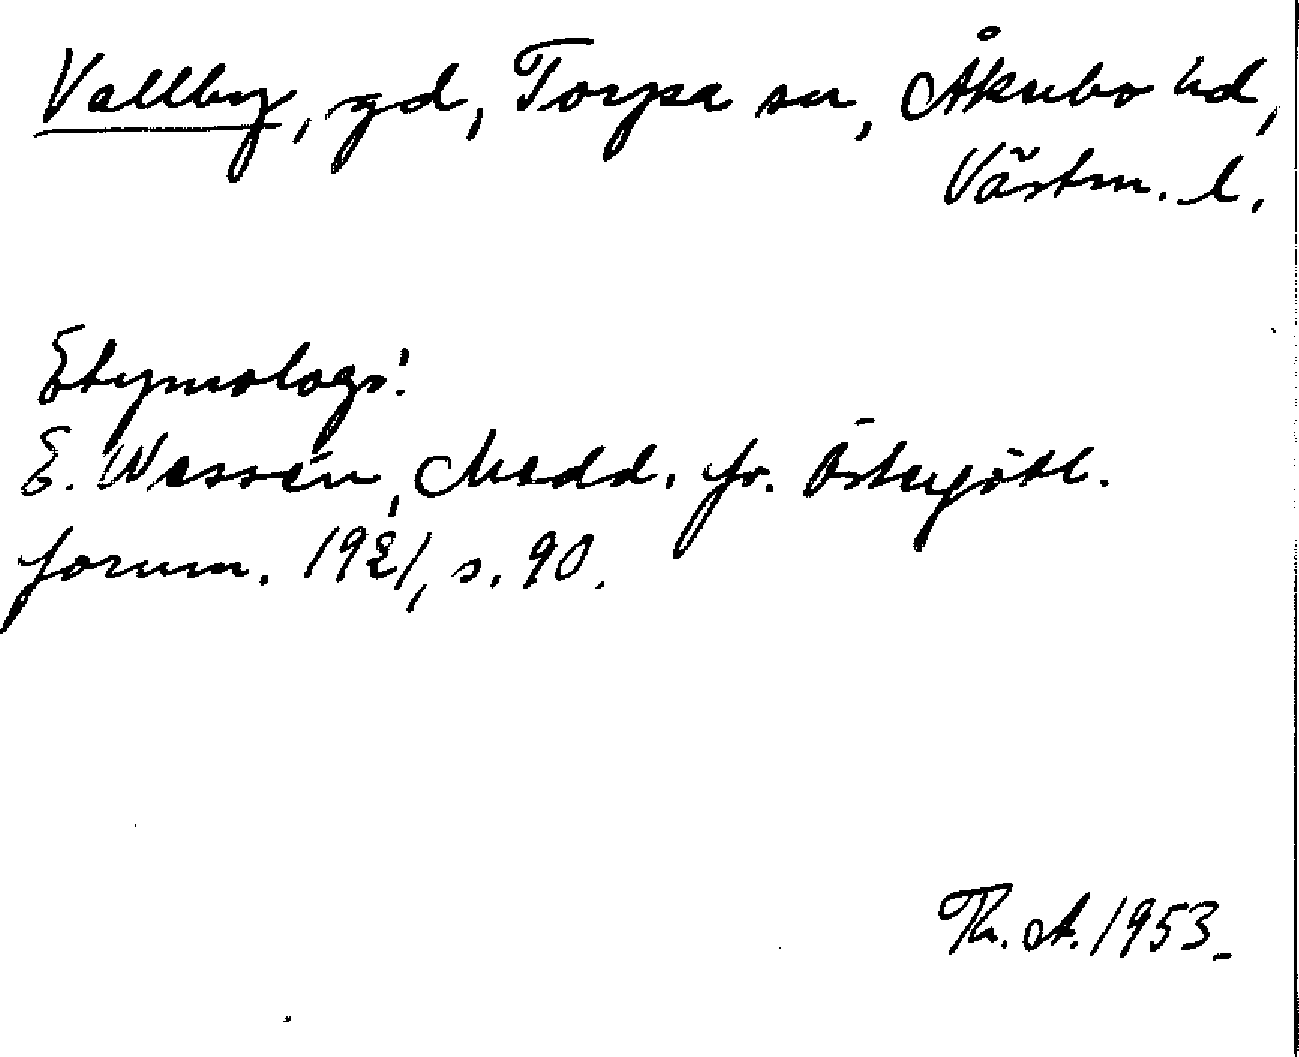 Vallby, gd, Torpa sn, Åkerbo hd,
Västm. l.
Etymologi:
E. Wessén, Medd. fr. Östergötl.
fornm. 1921, s. 90.
Th. A. 1953.